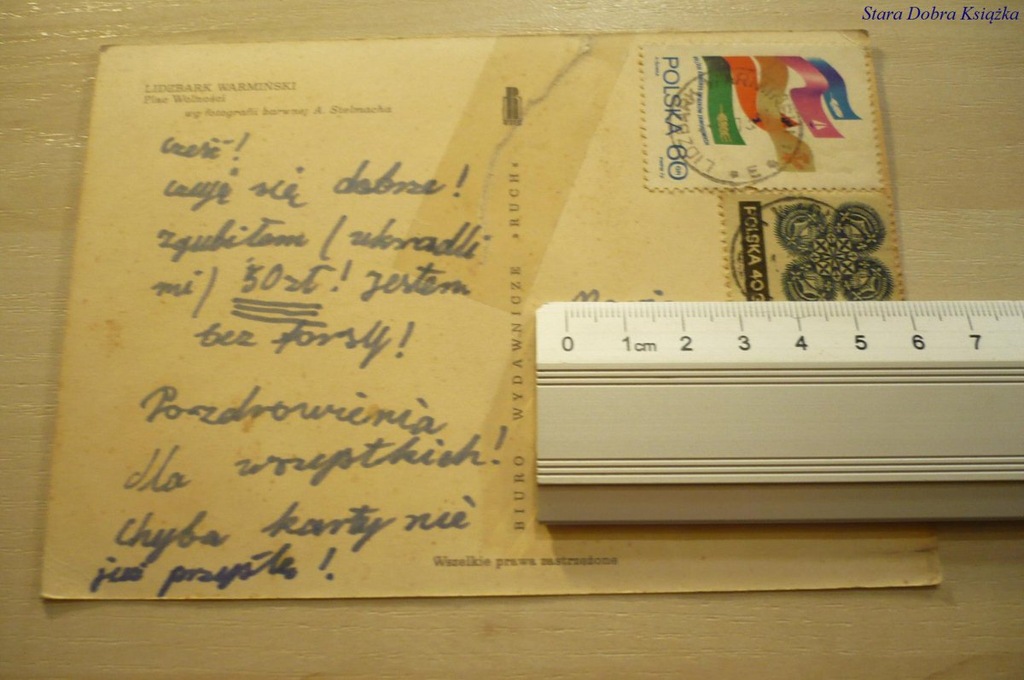 Stara Dobra Książka
LIDZBARK WARMIŃSKI
Plac Wolności
wg fotografii barwnej A. Stelmacha
cześć!
czuję się dobrze!
zgubiłem / ukradli
mi/ 50 zł! Jestem
bez forsy!
Pozdrowienia
dla wszystkich!
Chyba karty nie
już przyślę!
BIURO WYDAWNICZE »RUCH«
Wszelkie prawa zastrzeżone
POLSKA 60
POLSKA 40
0 1cm 2 3 4 5 6 7